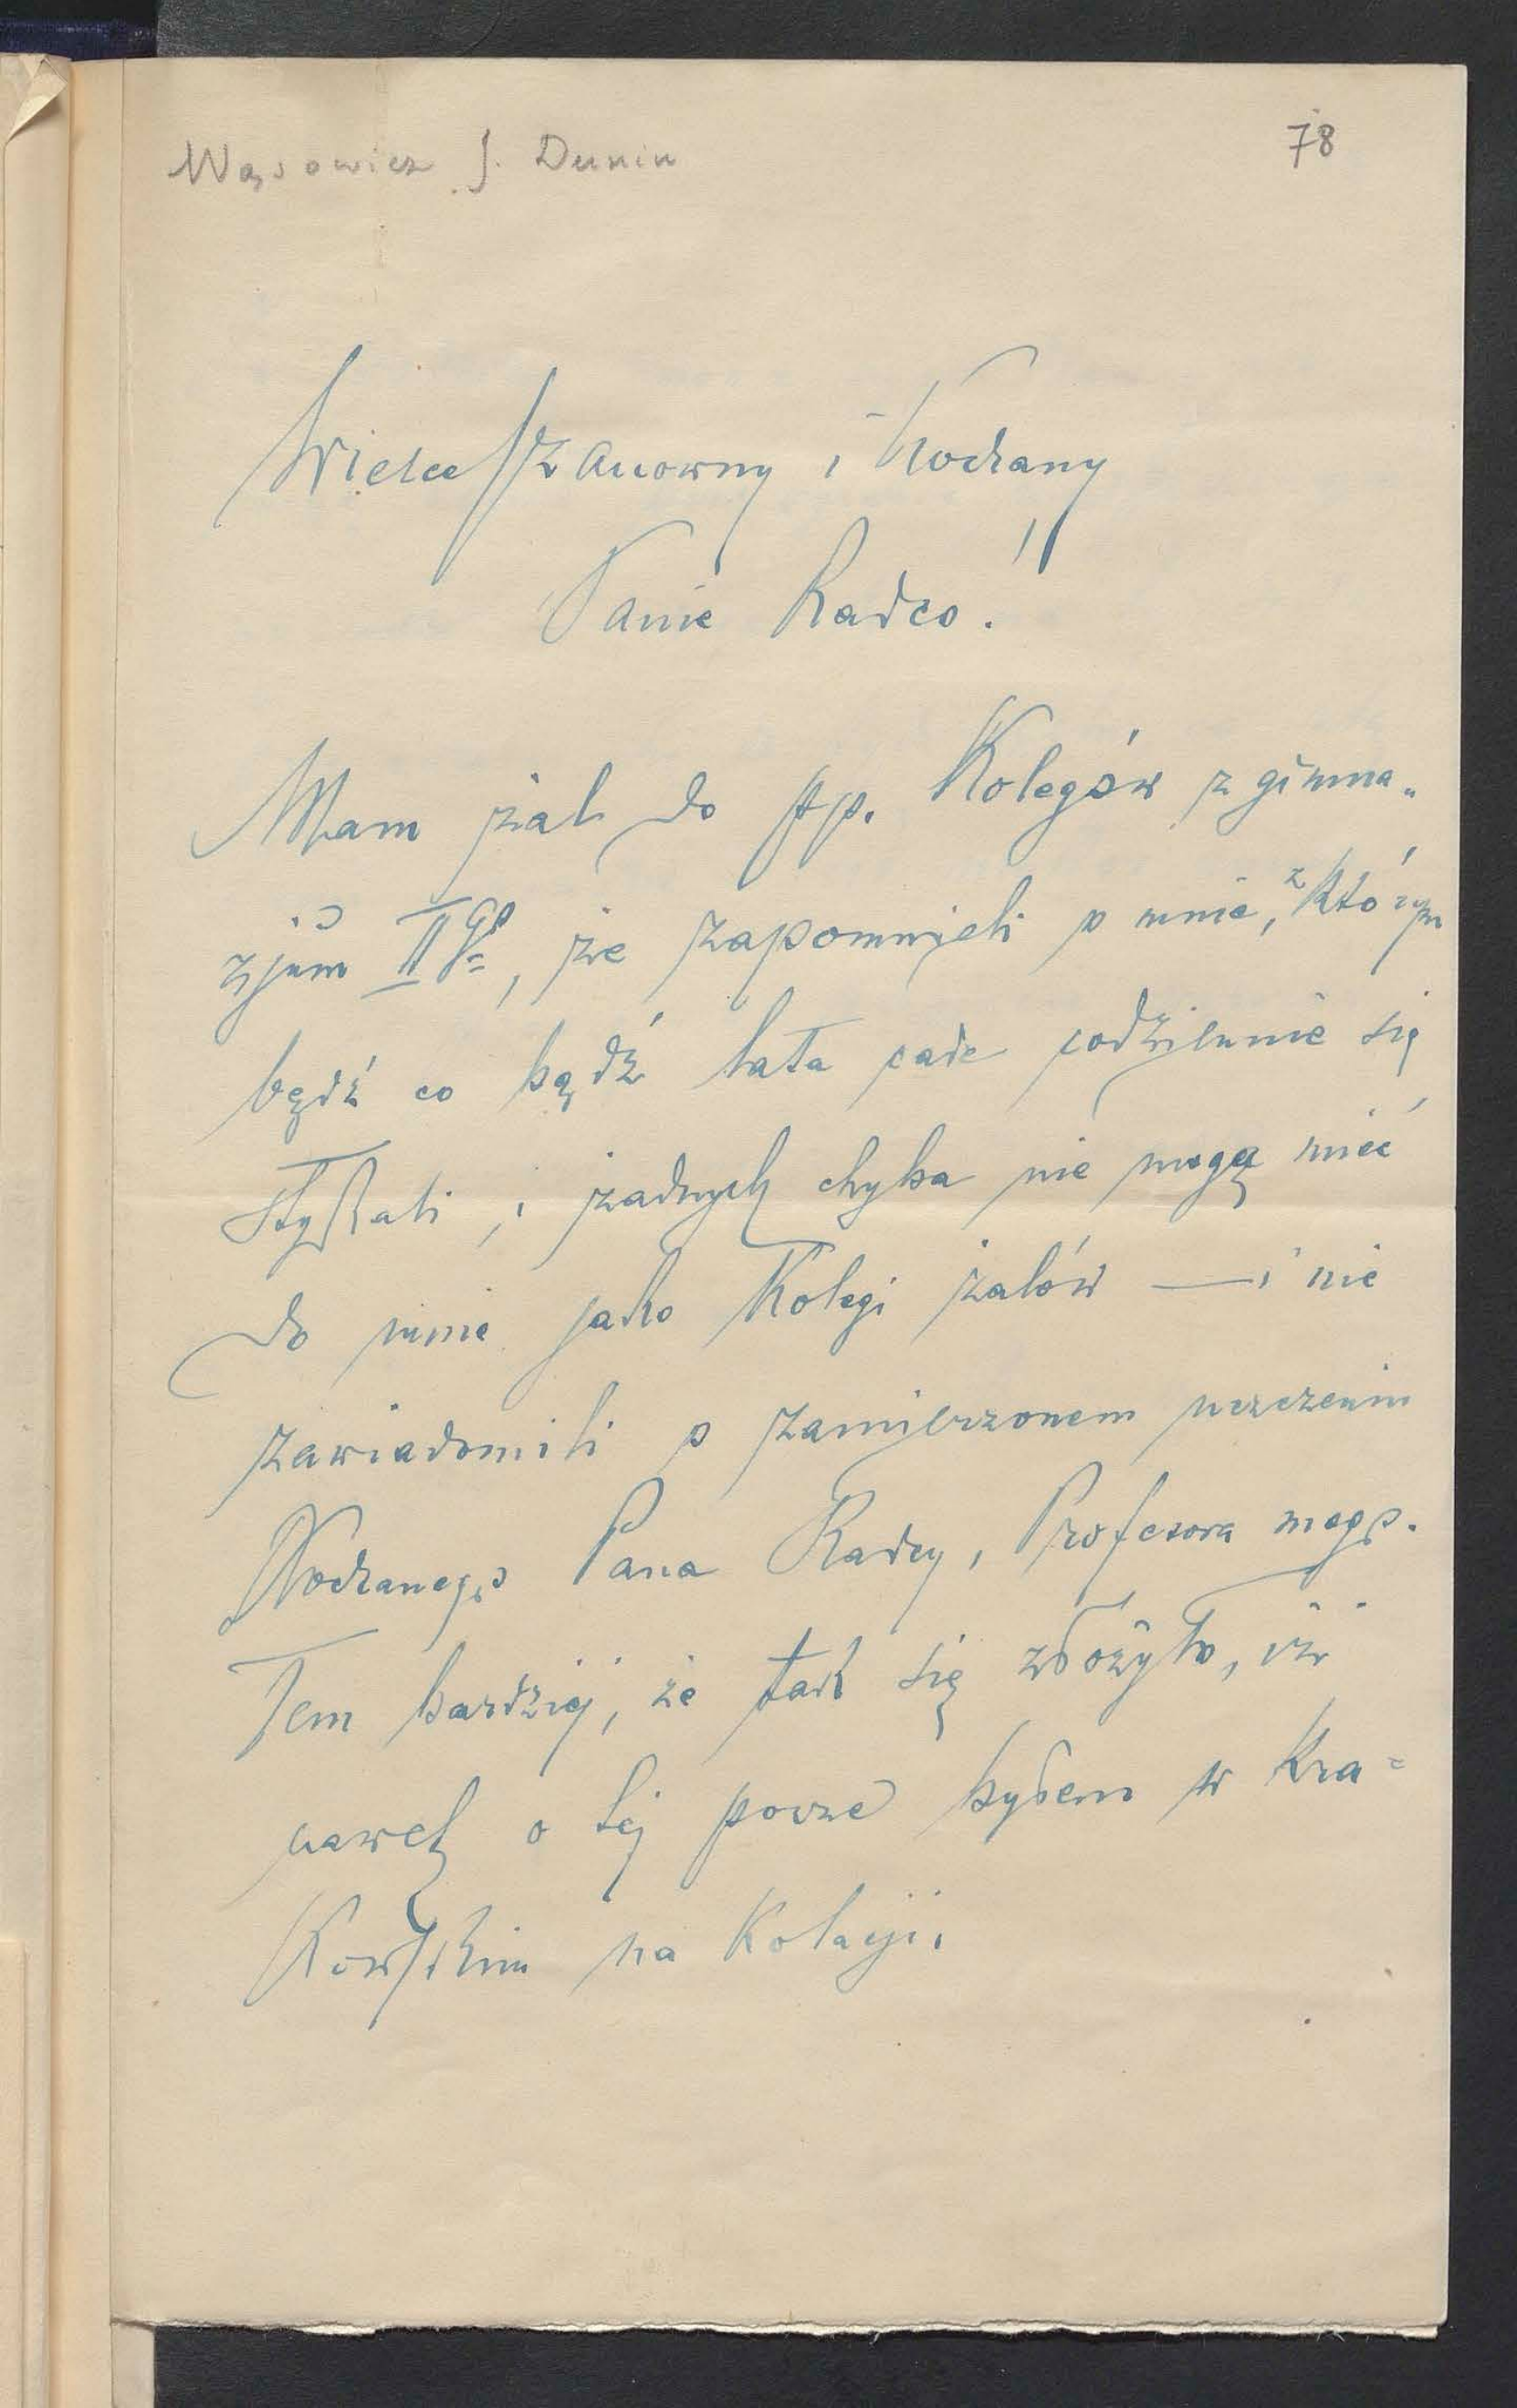 Wąsowicz J. Dunin
78
Wielce Szanowny i Kochany
Panie Radco!
Mam żal do pp. Kolegów z gimna-
zjum II go, że zapomnieli o mnie, z którym
bądź co bądź lata całe codziennie się
stykali, i żadnych chyba nie mogą mieć
do mnie jako Kolegi żalów — i nie
zawiadomili o zamierzonem uczczeniu
Kochanego Pana Radcy, Profesora mego.
Tem bardziej, że tak się złożyło, iż
nawet o tej porze byłem w Kra-
kowskim na kolacji.